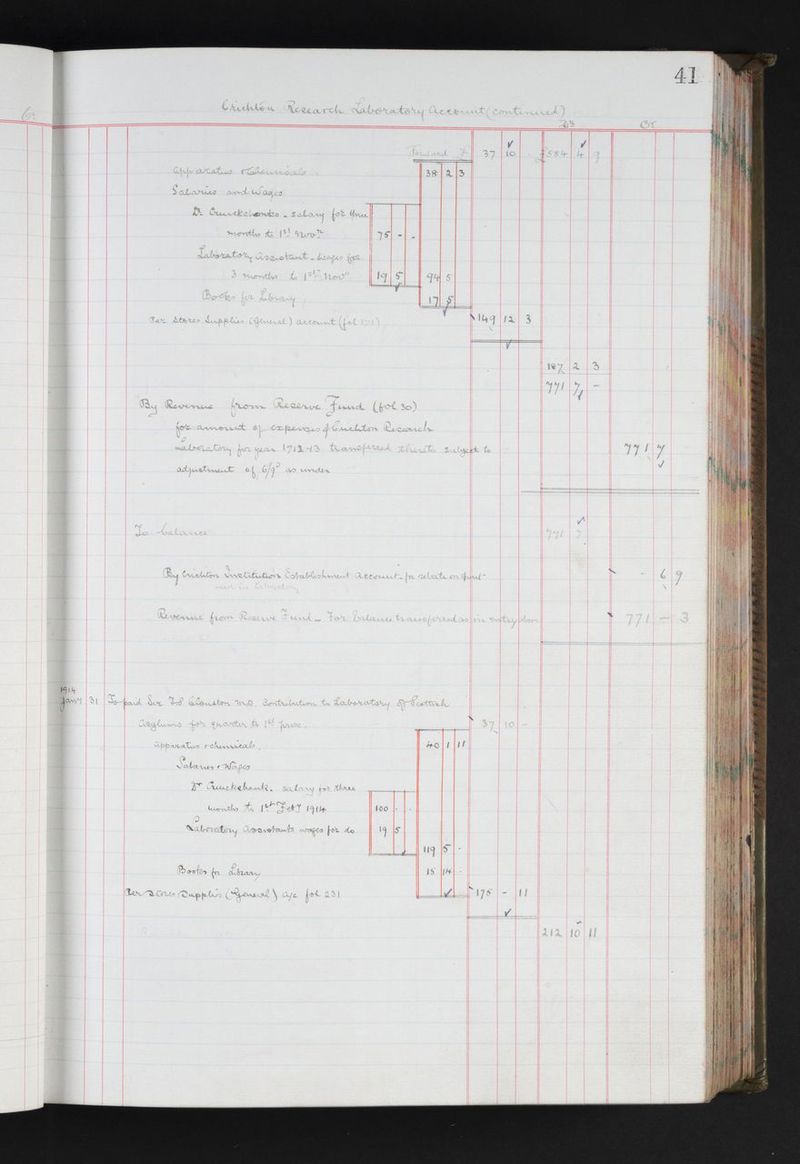 41
Crichton Research Laboratory Account (continued)
Forward £ 37 10 £584 4 9
Apparatus & Chemicals 38 2 3
Salaries and Wages
Dr Cruickshanks - salary for three
months to 1st Novr 75 - -
Laboratory Assistant - Wages for
3 months to 1st Novr 19 5 94 5
Books for Library 17 5
Per Stores Supplies (General) account (fol 149 12 3
187 2 3
771 7 -
By Revenue from Reserve Fund (fol 30)
for amount of expenses of Crichton Research
Laboratory for year 1912-13 transferred thereto subject to 771 7
adjustment of 6/9d as under
To balance 771 7
By Crichton Institution Establishment Account - for rebate on - 6 9
Revenue from Reserve Fund - For balance transferred as in entry 771 - 3
1914
Jany 31 To paid Sir Clouston M.D. Contribution to Laboratory of Scottish
Asylums for quarter to 1st prox. 37 10 -
Apparatus & chemicals 40 1 11
Salaries & Wages
Dr Cruickshank. Salary for three
months to 1st Feby 1914 100 - -
Laboratory Assistants wages for do 19 5
119 5 -
Books for Library 15 14 -
Per Stores Supplies (General) a/c fol 231 175 - 11
212 10 11